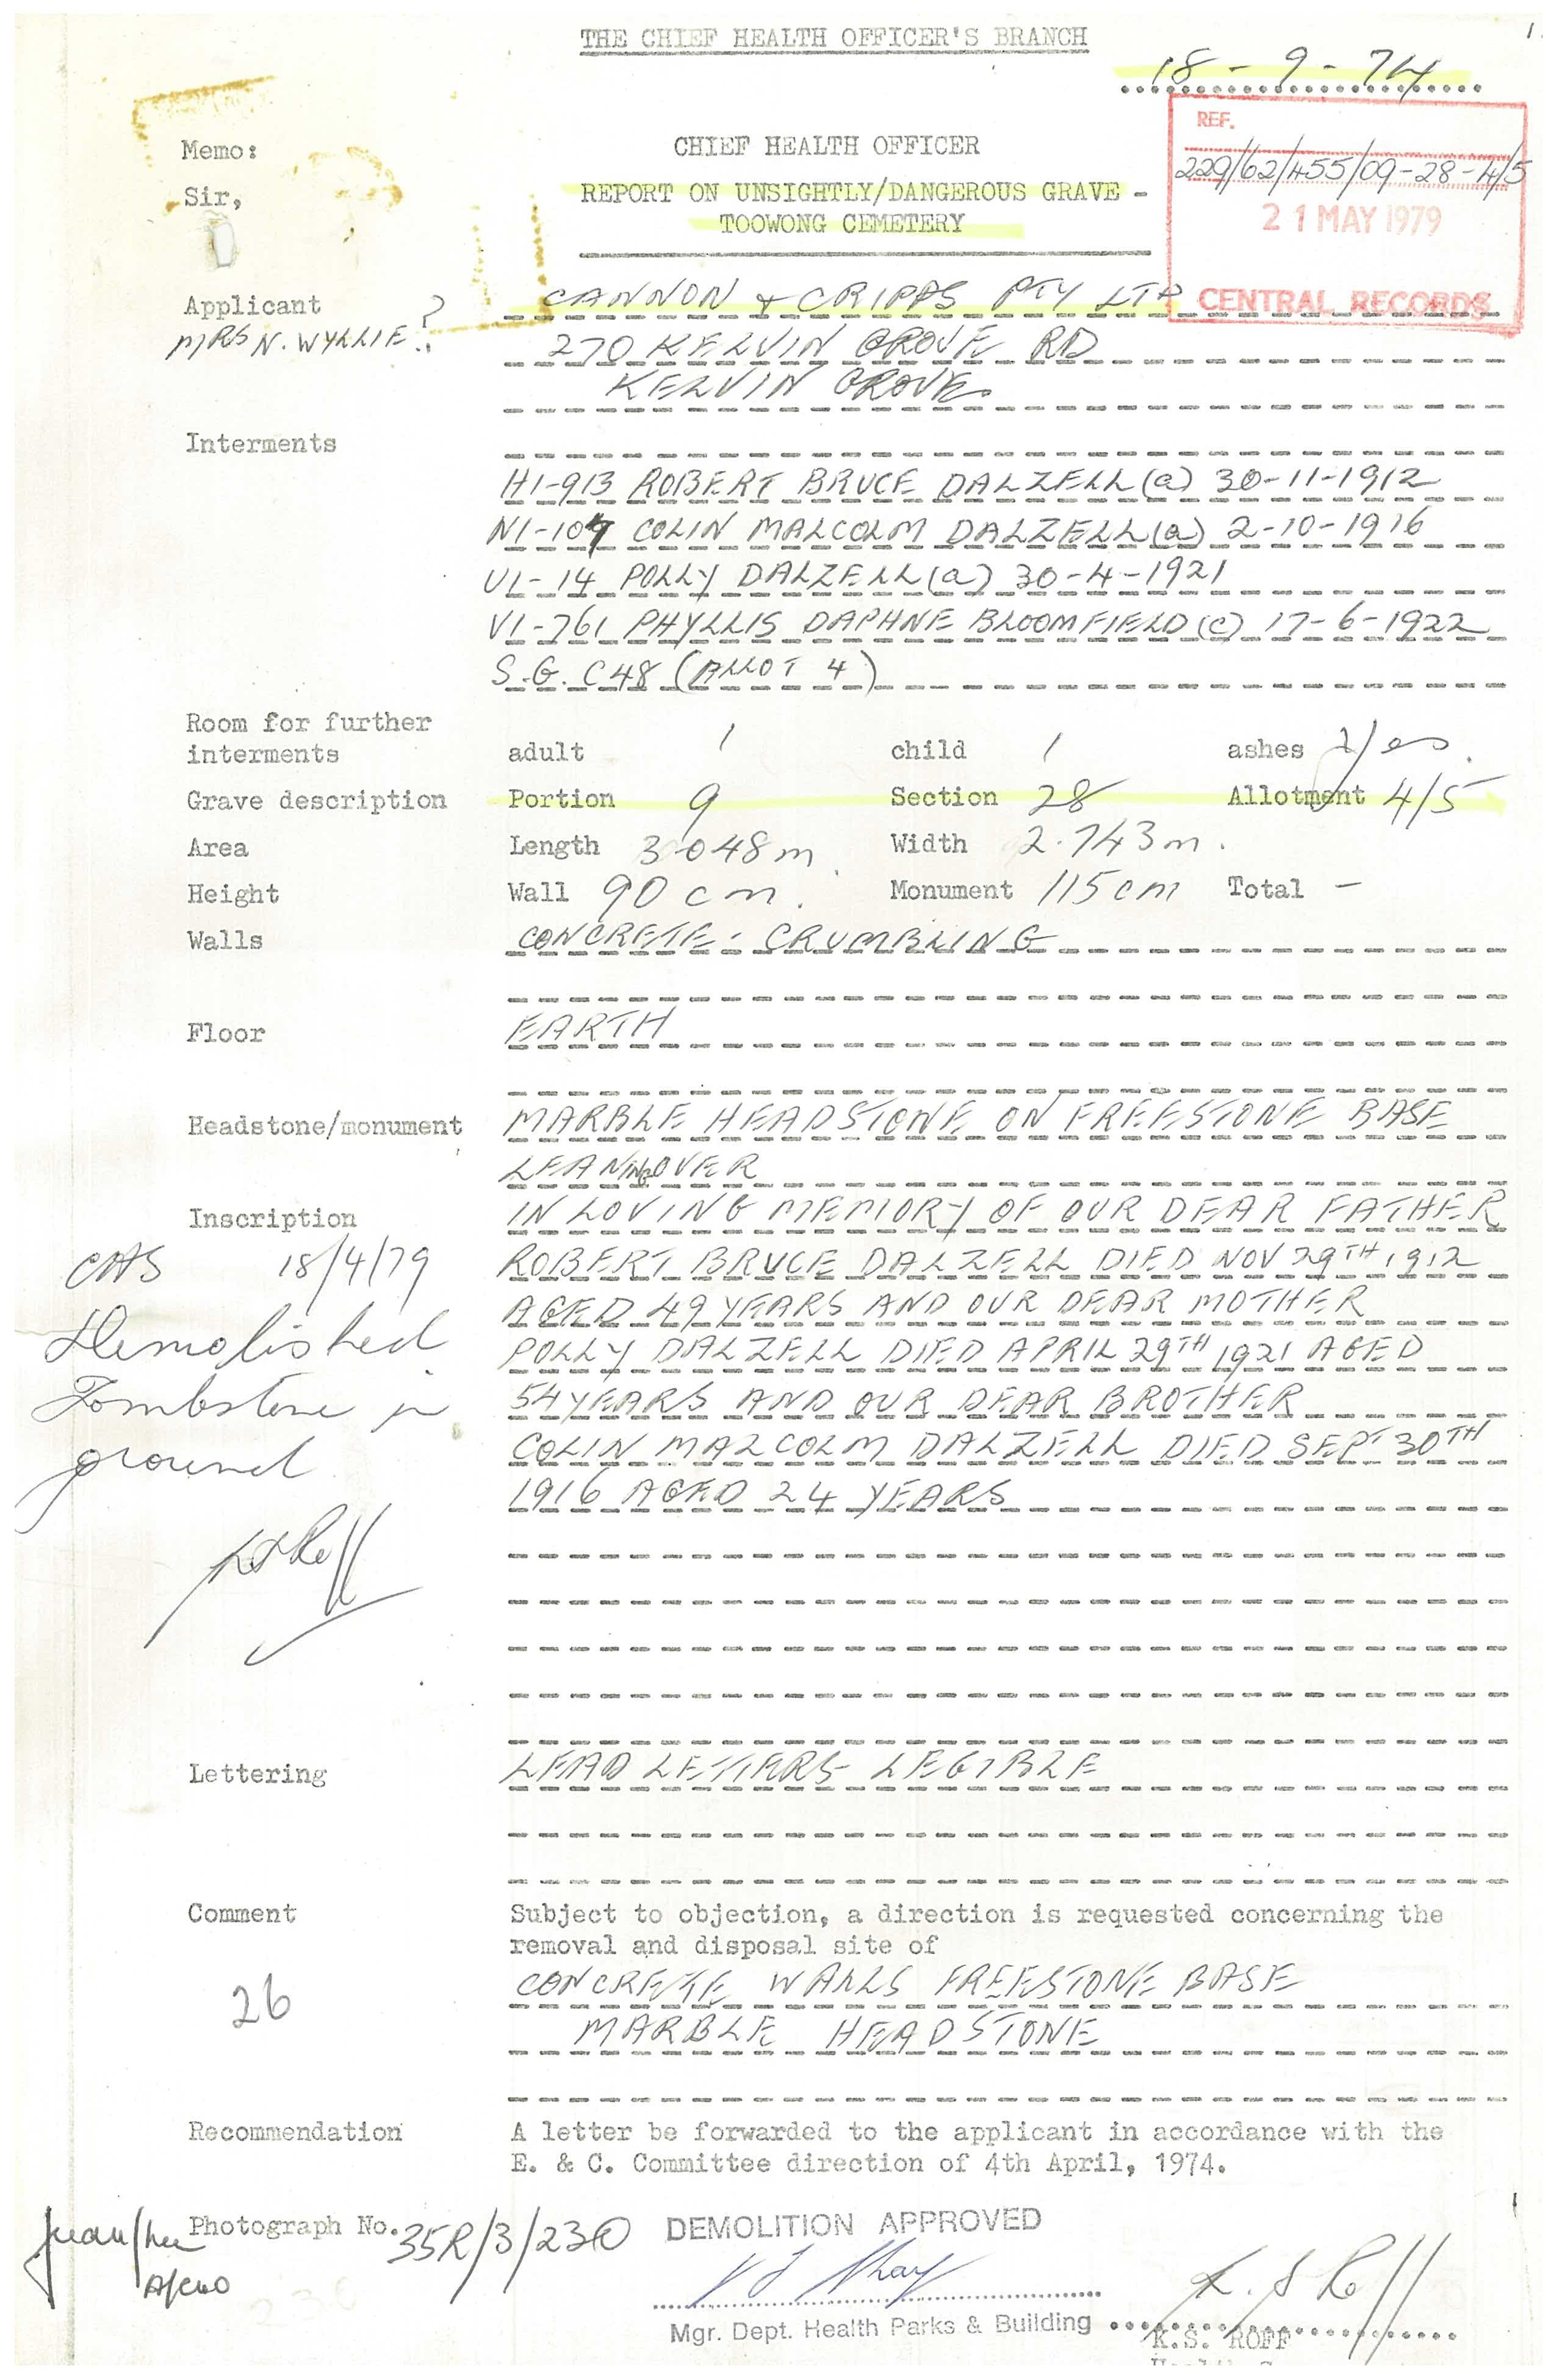 THE CHIEF HEALTH OFFICER'S BRANCH
18-9-74
Memo:
CHIEF HEALTH OFFICER
REF.
229/62/455/09-28-4/5
Sir,
REPORT ON UNSIGHTLY/DANGEROUS GRAVE -
TOOWONG CEMETERY
21 MAY 1979
CENTRAL RECORDS
Applicant CANNON & CRIPPS PTY LTD
MRS N. WYLLIE ?
270 KELVIN GROVE RD
KELVIN GROVE
Interments
H1-913 ROBERT BRUCE DALZELL (a) 30-11-1912
COLIN MALCOLM DALZELL (a) 2-10-1916
U1-14 POLLY DALZELL (a) 30-4-1921
V1-761 PHYLLIS DAPHNE BLOOMFIELD (c) 17-6-1922
S.G. C48 (ALLOT 4)
Room for further
interments adult 1 child 1 ashes yes.
Grave description Portion 9 Section 28 Allotment 4/5
Area Length 3.048m Width 2.743m.
Height Wall 90 cm. Monument 115cm Total -
Walls CONCRETE - CRUMBLING
Floor EARTH
Headstone/monument MARBLE HEADSTONE ON FREESTONE BASE
LEANING OVER
Inscription IN LOVING MEMORY OF OUR DEAR FATHER
ROBERT BRUCE DALZELL DIED NOV 29TH 1912
AGED 49 YEARS AND OUR DEAR MOTHER
POLLY DALZELL DIED APRIL 29TH 1921 AGED
54 YEARS AND OUR DEAR BROTHER
COLIN MALCOLM DALZELL DIED SEPT 30TH
1916 AGED 24 YEARS
CHS 18/4/79
Demolished
Tombstone in
ground
Lettering LEAD LETTERS - LEGIBLE
Comment Subject to objection, a direction is requested concerning the
removal and disposal site of
CONCRETE WALLS FREESTONE BASE
MARBLE HEADSTONE
26
Recommendation A letter be forwarded to the applicant in accordance with the
E. & C. Committee direction of 4th April, 1974.
Photograph No. 35R/3/230 DEMOLITION APPROVED
Mgr. Dept. Health Parks & Building
K.S. ROFF